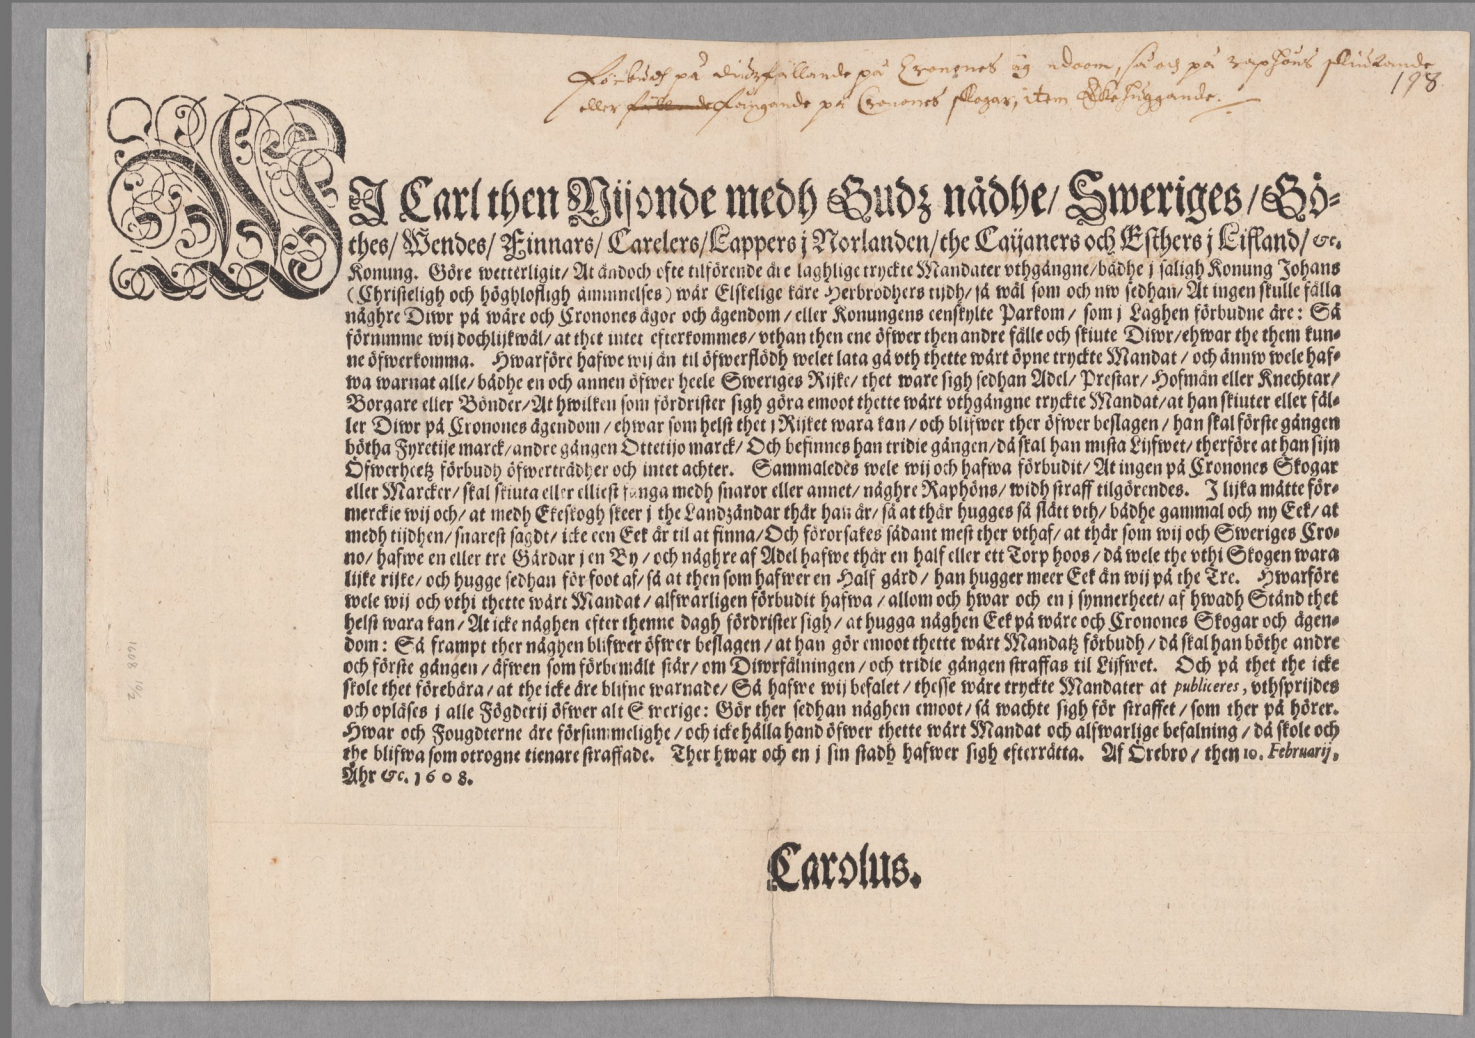 Förbudh på diurfällande på Cronones ägendoom, så och på raphöns skiutande
198.
eller fångande på Cronones skogar, item Ekehuggande.
WJ Carl then Nijonde medh Gudz nådhe/ Sweriges/ Gö-
thes/ Wendes/ Finnars/ Carelers/ Lappers j Norlanden/ the Caijaners och Esthers j Lifland/ &c.
Konung. Göre wetterligit/ At ändoch ofte tilförende äre laghlige tryckte Mandater vthgångne/ bådhe j saligh Konung Johans
(Christeligh och höghlofligh åminnelses) wår Elskelige käre Herbrodhers tijdh/ så wäl som och nw sedhan/ At ingen skulle fälla
någhre Diwr på wåre och Cronones ägor och ägendom/ eller Konungens eenskylte Parkom/ som j Laghen förbudne äre: Så
förnimme wij dochlijkwäl/ at thet intet efterkommes/ vthan then ene öfwer then andre fälle och skiute Diwr/ ehwar the them kun-
ne öfwerkomma. Hwarföre hafwe wij än til öfwerflödh welet lata gå vth thette wårt öpne tryckte Mandat/ och ännw wele haf-
wa warnat alle/ bådhe en och annen öfwer heele Sweriges Rijke/ thet ware sigh sedhan Adel/ Prestar/ Hofmän eller Knechtar/
Borgare eller Bönder/ At hwilken som fördrister sigh göra emoot thette wårt vthgångne tryckte Mandat/ at han skiuter eller fäl-
ler Diwr på Cronones ägendom/ ehwar som helst thet j Rijket wara kan/ och blifwer ther öfwer beslagen/ han skal förste gången
bötha Fyretije marck/ andre gången Ottetijo marck/ Och befinnes han tridie gången/ då skal han mista Lijfwet/ therföre at han sijn
Öfwerheetz förbudh öfwerträdher och intet achter. Sammaledes wele wij och hafwa förbudit/ At ingen på Cronones Skogar
eller Marcker/ skal skiuta eller elliest fånga medh snaror eller annet/ någhre Raphöns/ widh straff tilgörendes. J lijka måtte för-
merckie wij och/ at medh Ekeskogh skeer j the Landzändar thär han är/ så at thär hugges så slått vth/ bådhe gammal och ny Eek/ at
medh tijdhen/ snarest sagdt/ icke een Eek är til at finna/ Och förorsakes sådant mest ther vthaf/ at thär som wij och Sweriges Cro-
no/ hafwe en eller tre Gårdar j en By/ och någhre af Adel hafwe thär en half eller ett Torp hoos/ då wele the vthi Skogen wara
lijke rijke/ och hugge sedhan för foot af/ så at then som hafwer en Half gård/ han hugger meer Eek än wij på the Tre. Hwarföre
wele wij och vthi thette wårt Mandat/ alfwarligen förbudit hafwa/ allom och hwar och en j synnerheet/ af hwadh Stånd thet
helst wara kan/ At icke någhen efter thenne dagh fördrister sigh/ at hugga någhen Eek på wåre och Cronones Skogar och ägen-
dom: Så frampt ther någhen blifwer öfwer beslagen/ at han gör emoot thette wårt Mandatz förbudh/ då skal han böthe andre
och förste gången/ äfwen som förbemält står/ om Diwrfälningen/ och tridie gången straffas til Lijfwet. Och på thet the icke
skole thet förebära/ at the icke äre blifne warnade/ Så hafwe wij befalet/ thesse wåre tryckte Mandater at publiceres, vthsprijdes
och opläses j alle Fögderij öfwer alt Swerige: Gör ther sedhan någhen emoot/ så wachte sigh för straffet/ som ther på hörer.
Hwar och Fougdterne äre försummelighe/ och icke hålla hand öfwer thette wårt Mandat och alfwarlige befalning/ då skole och
the blifwa som otrogne tienare straffade. Ther hwar och en j sin stadh hafwer sigh efterrätta. Af Örebro/ then 10. Februarij,
Åhr &c. 1608.
Carolus.
1608 10/2